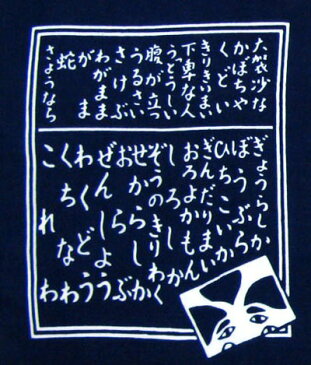 大袈沙な
かぼちゃ
くどい
きりきいまい
な人
うっとうしい
腹が立つ
うるさい
さけぶ
わがまま
がま
蛇
さようなら
ぎょうらしか
ぼうぶら
ひちこい
ぎんだりまい
おろよかもん
しろしか
ぞうのきりわく
せからしか
おらぶ
ぜんしょう
わくどう
くちなわ
これわ